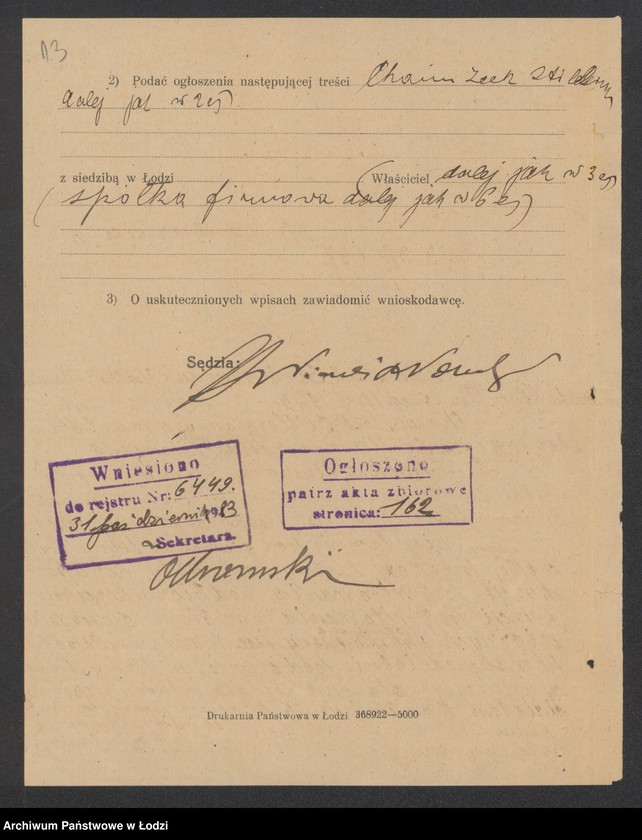 13
2) Podać ogłoszenia następującej treści Chaim
dalej jak w 2ej
z siedzibą w Łodzi (Właściciel dalej jak w 3ej)
(spółka firmowa dalej jak w 6ej)
3) O uskutecznionych wpisach zawiadomić wnioskodawcę.
Sędzia:
Wniesiono
do rejstru Nr: 6449.
31 październik 1923
Sekretarz
Ogłoszono
patrz akta zbiorowe
stronica: 162
Drukarnia Państwowa w Łodzi 368922—5000
Archiwum Państwowe w Łodzi